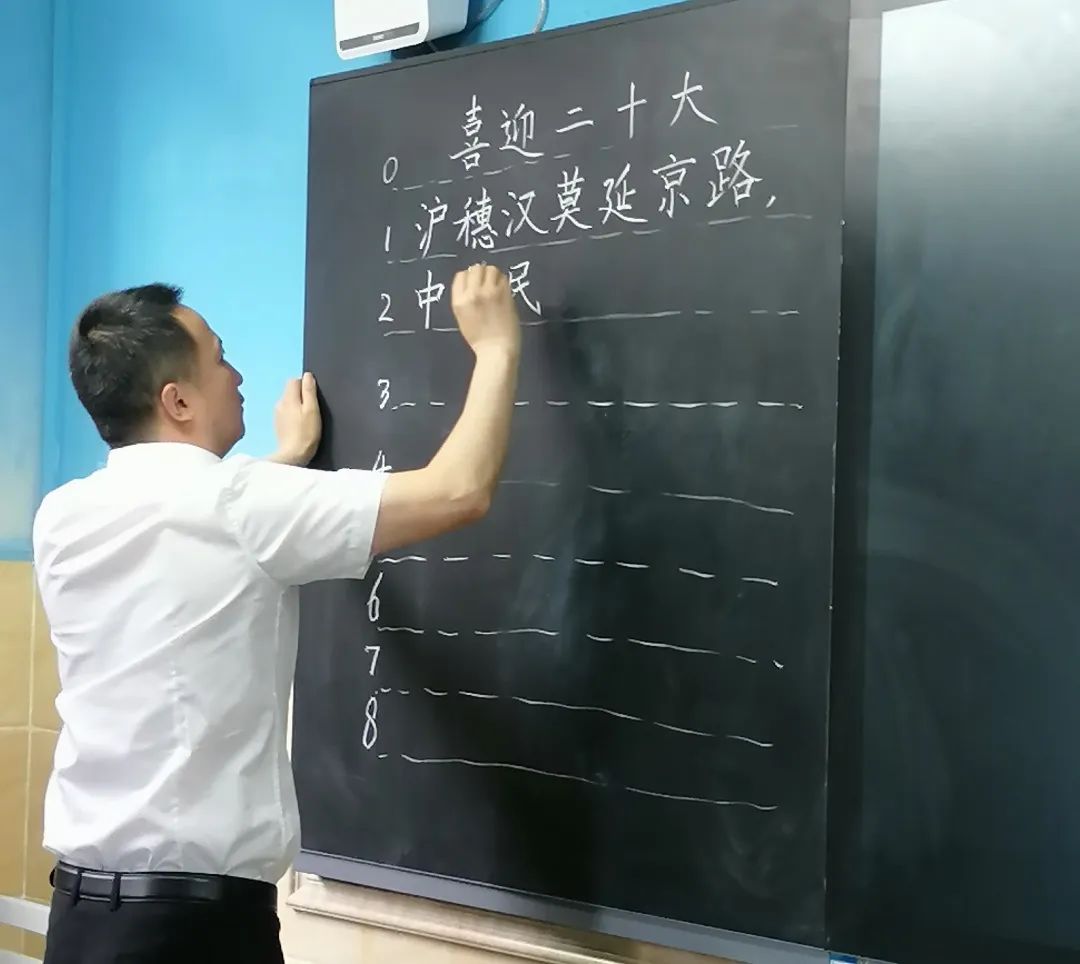 喜迎二十大
0
1 沪穗汉莫延京路,
2 中 民
3
4
6
7
8